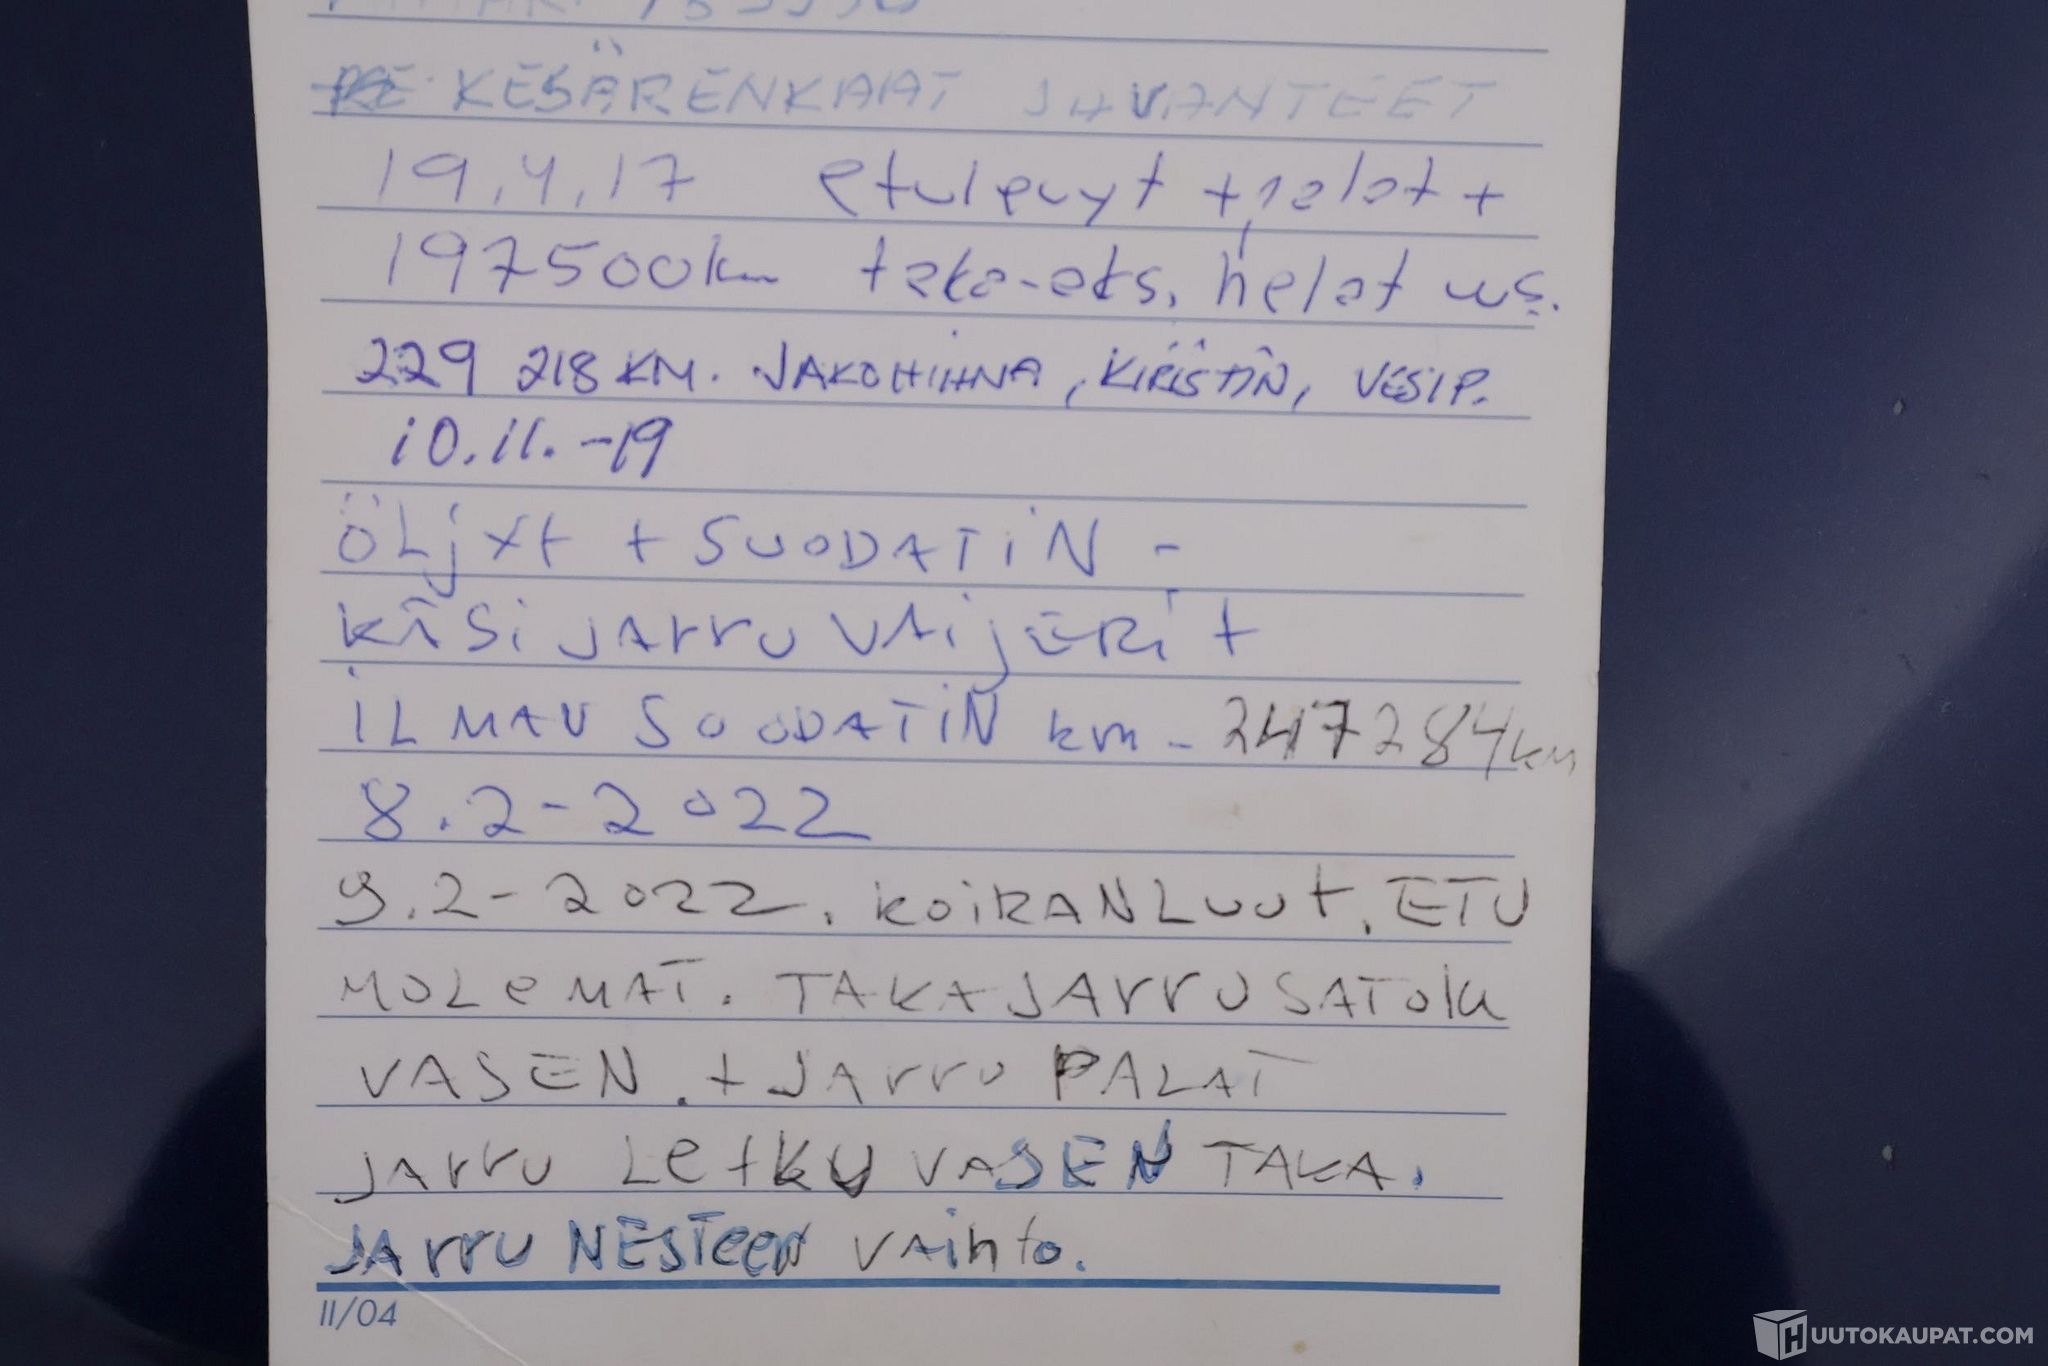 KESÄRENKAAT JA VANTEET
19.4.17 etulevyt + palat +
197500km taka-aks. helat ws.
229 218 KM. JAKOHIHNA, KIRISTIN, VESIP.
10.11.-19
ÖLjyt + SUODATIN -
KÄSiJArrU VAijERi +
iLMAN SUODATiN km - 247284km
8.2-2022
9.2-2022. KOiRANLUUt. ETU
MOLeMAT. TAKAJArrUSATULA
VASEN. + JArrU PALAT
JArrU LetKU VASEN TAKA.
JArrU NESTeeN VAihto.
11/04
HUUTOKAUPAT.COM